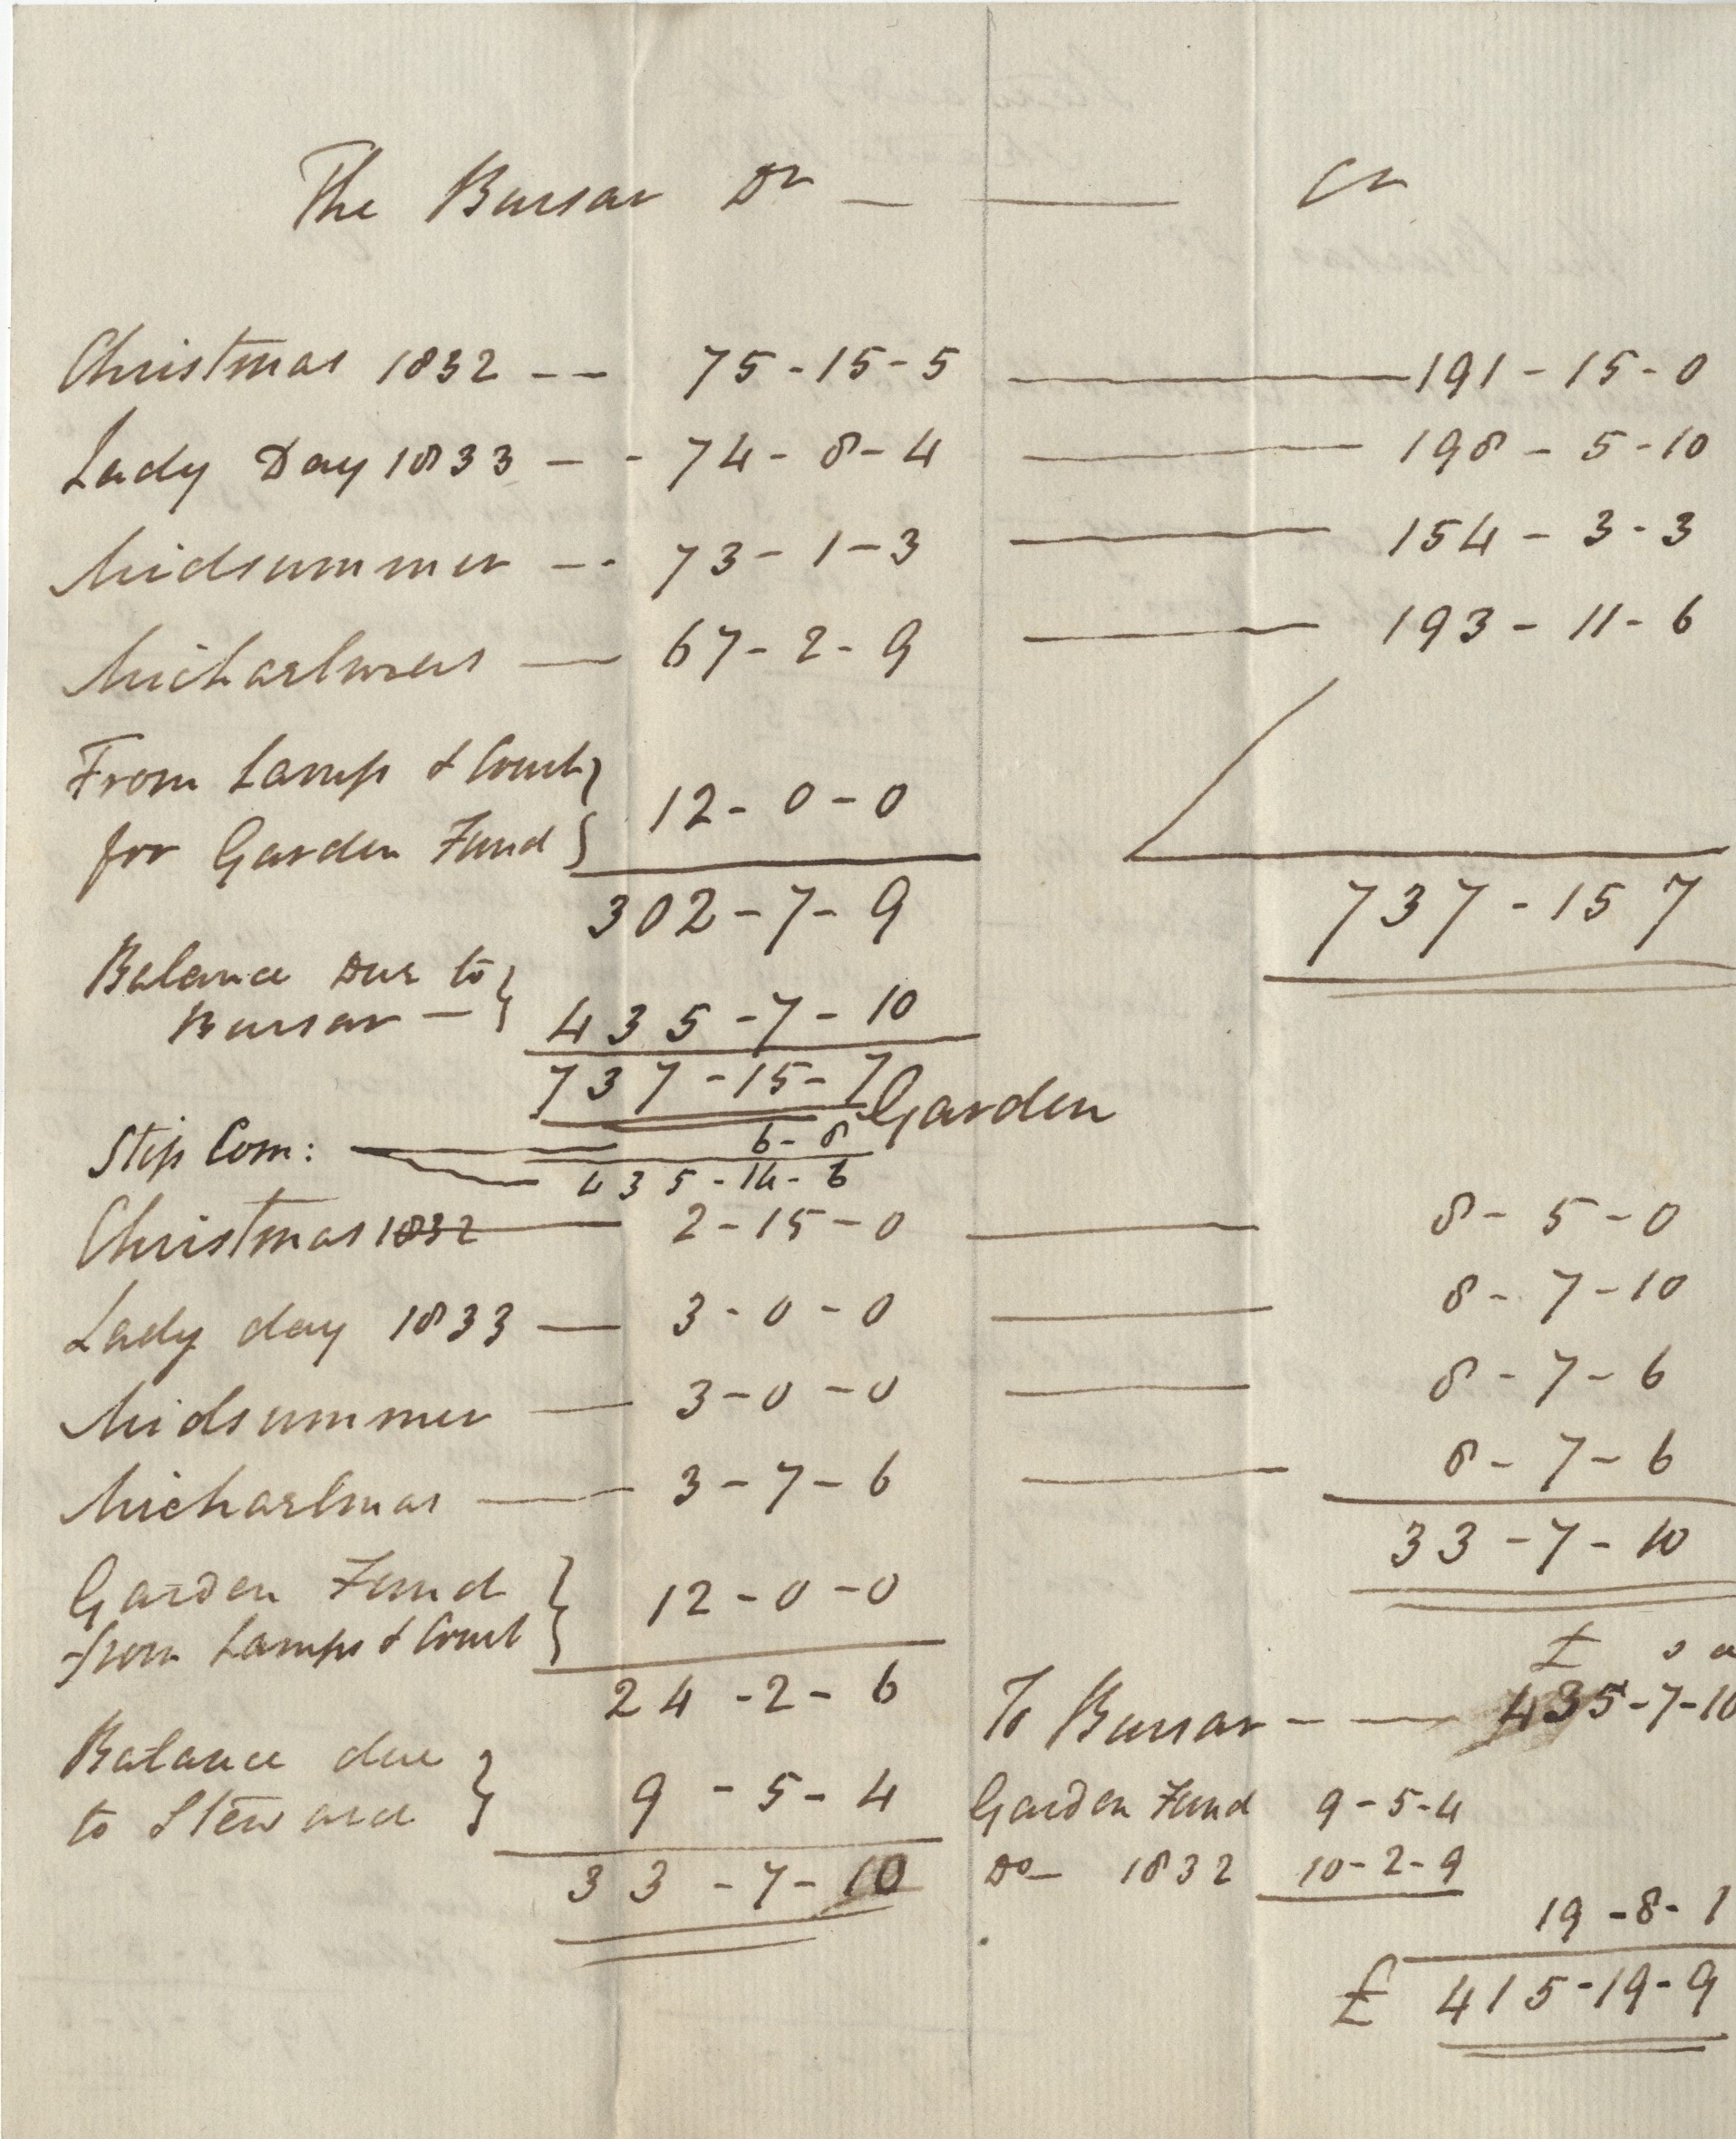 The Bursar Dr — —— Cr
Christmas 1832 -- 75-15-5 —— 191-15-0
Lady Day 1833 -- 74-8-4 —— 198-5-10
Midsummer -- 73-1-3 —— 154-3-3
Michaelmas — 67-2-9 —— 193-11-6
From Lamp & Court
for Garden Fund } 12-0-0
302-7-9 737-15 7
Balance Due to
Bursar — } 435-7-10
737-15-7
Garden
Stip Com: 6-8
435-14-6
Christmas 1832 — 2-15-0 —— 8-5-0
Lady day 1833 — 3-0-0 —— 8-7-10
Midsummer — 3-0-0 —— 8-7-6
Michaelmas — 3-7-6 —— 8-7-6
33-7-10
Garden Fund
from Lamps & Court } 12-0-0
24-2-6
£ s d
To Bursar -— 435-7-10
Balance due
to Steward } 9-5-4
Garden Fund 9-5-4
33-7-10
Do— 1832 10-2-9
19-8-1
£ 415-19-9